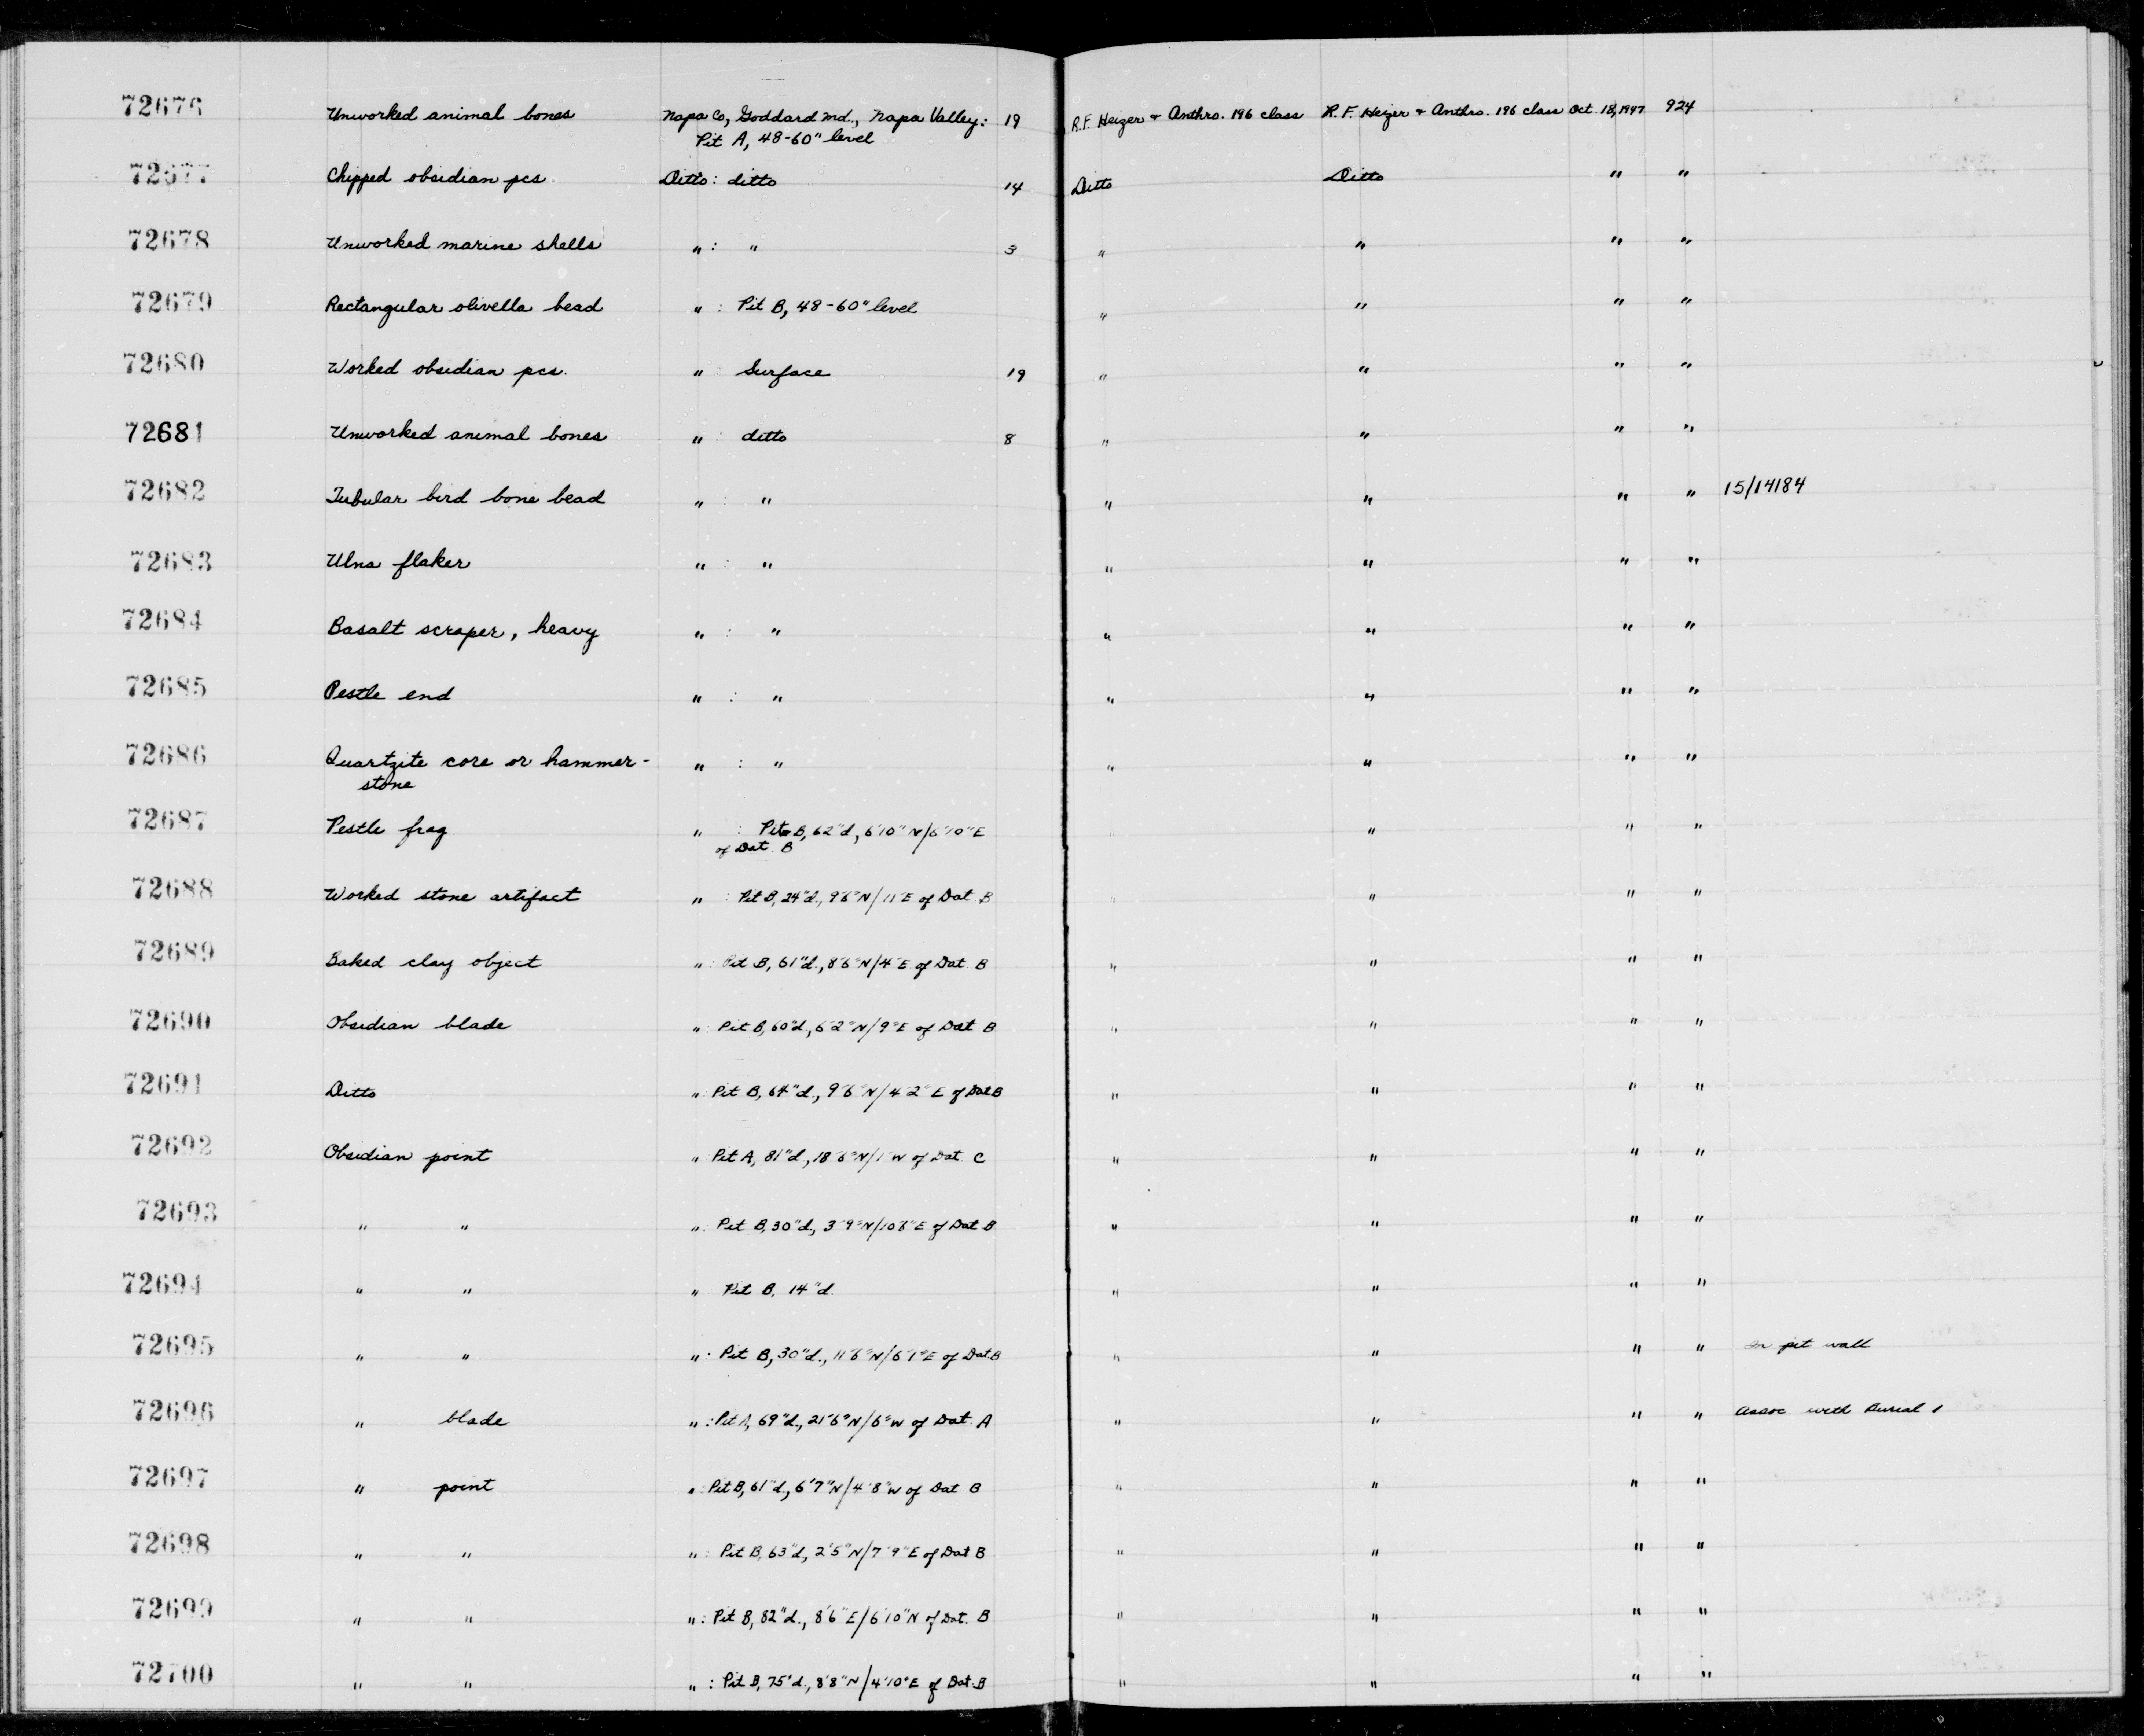 72676 Unworked animal bones Napa Co, Goddard Md., Napa Valley: 19 R.F. Heizer + Anthro. 196 class R.F. Heizer + Anthro. 196 class Oct. 18, 1947 924
Pit A, 48-60" level
72677 Chipped obsidian pcs Ditto: ditto 14 Ditto Ditto " "
72678 Unworked marine shells " : " 3 " " " "
72679 Rectangular olivella bead " : Pit B, 48-60" level " " " "
72680 Worked obsidian pcs. " : Surface 19 " " " "
72681 Unworked animal bones " : ditto 8 " " " "
72682 Tubular bird bone bead " : " " " " " 15/14184
72683 Ulna flaker " : " " " " "
72684 Basalt scraper, heavy " : " " " " "
72685 Pestle end " : " " " " "
72686 Quartzite core or hammer- " : " " " " "
stone
72687 Pestle frag " : Pit B, 62"d, 6'10"N/6'10"E " " "
of Dat. B
72688 Worked stone artifact " : Pit B, 24"d., 9'6"N/11'E of Dat. B " " " "
72689 Baked clay object " : Pit B, 61"d., 8'6"N/4'E of Dat. B " " " "
72690 Obsidian blade " : Pit B, 60"d, 6'2"N/9"E of Dat B " " " "
72691 Ditto " : Pit B, 64"d., 9'6"N/4'2"E of Dat B " " " "
72692 Obsidian point " Pit A, 81"d, 18'6"N/1'W of Dat. C " " " "
72693 " " " : Pit B, 30"d, 3'9"N/10'8"E of Dat B " " " "
72694 " " " Pit B, 14"d. " " " "
72695 " " " : Pit B, 30"d., 11'6"N/6'1"E of Dat. B " " " " In pit wall
72696 " blade " : Pit A, 69"d., 21'6"N/6"W of Dat. A " " " " Assoc with Burial 1
72697 " point " : Pit B, 61"d., 6'7"N/4'8"W of Dat B " " " "
72698 " " " : Pit B, 63"d, 2'5"N/7'9"E of Dat B " " " "
72699 " " " : Pit B, 82"d., 8'6"E/6'10"N of Dat. B " " " "
72700 " " " : Pit B, 75"d., 8'8"N/4'10"E of Dat. B " " " "